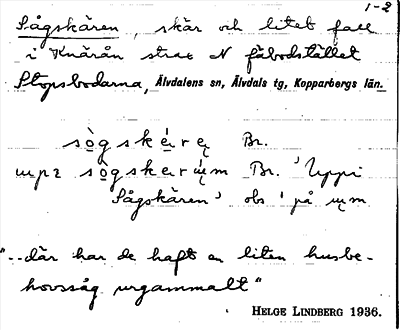 1-2
Sågskären, skär och litet fall
i Knärån strax N fäbodstället
Stopsbodarna, Älvdalens sn, Älvdals tg, Kopparbergs län.
Br.
Br. 'Uppi
Sågskären' obs! på
"--där har de haft en liten husbe-
hovssåg urgammalt"
HELGE LINDBERG 1936.